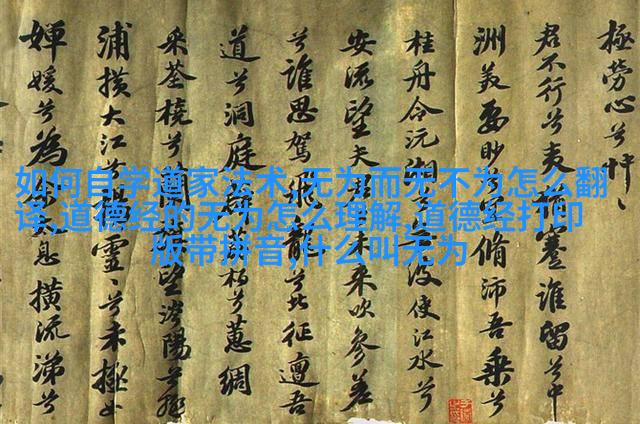 極勞心兮
君不行兮夷蹇誰留兮中
洲美要眇宜脩沛吾乘兮
桂舟令沅湘兮波使江水兮
安流望夫君未來吹參差
兮誰思駕飛龍兮北征邅吾
道兮洞庭柏兮蕙綢
采荃橈兮望涔陽兮
浦橫大江兮靈兮未極女
嬋媛兮為息橫流涕兮
如何自学道家法术,无为而无不为怎么翻
译,道德经的无为怎么理解,道德经打印
版带拼音,什么叫无为